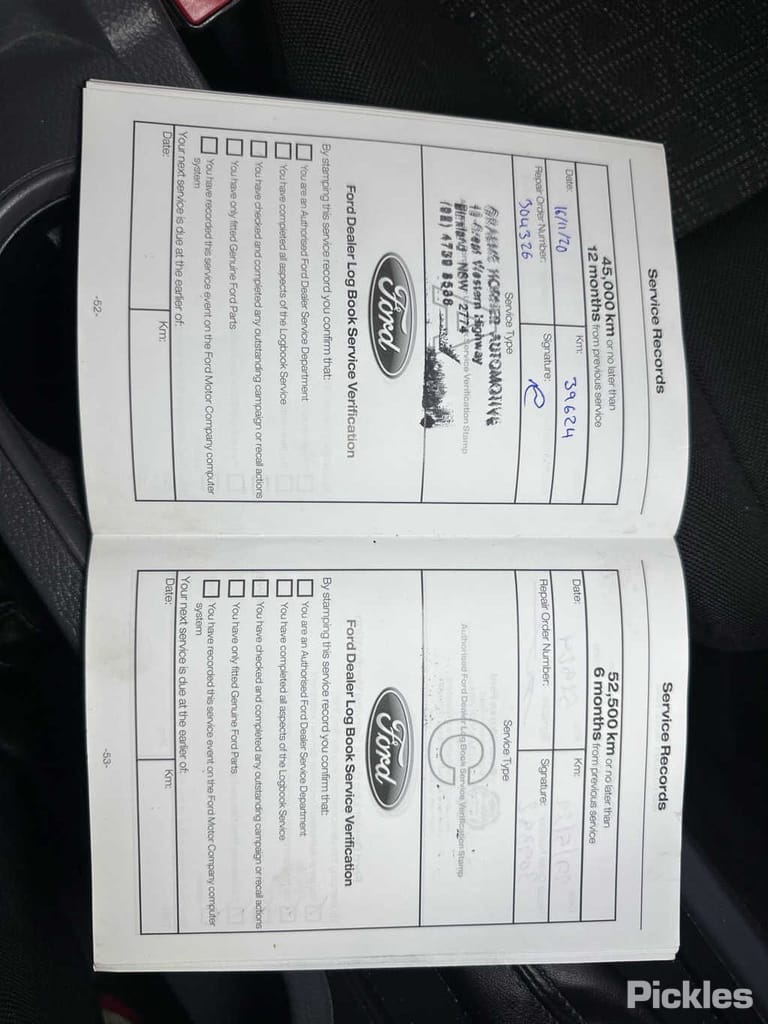 Service Records
45,000 km or no later than
12 months from previous service
Date: 16/11/20
Km: 39624
Repair Order Number: 304326
Signature:
Service Type
GRAEME HOMMER AUTOMOTIVE
Great Western Highway
Blaxland NSW 2774
Service Verification Stamp
(02) 4739 8588
Ford
Ford Dealer Log Book Service Verification
By stamping this service record you confirm that:
You are an Authorised Ford Dealer Service Department
You have completed all aspects of the Logbook Service
You have checked and completed any outstanding campaign or recall actions
You have only fitted Genuine Ford Parts
You have recorded this service event on the Ford Motor Company computer
system
Your next service is due at the earlier of:
Date:
Km:
-52-
Service Records
52,500 km or no later than
6 months from previous service
Date:
Km:
Repair Order Number:
Signature:
Service Type
Authorised Ford Dealer Log Book Service Verification Stamp
Ford
Ford Dealer Log Book Service Verification
By stamping this service record you confirm that:
You are an Authorised Ford Dealer Service Department
You have completed all aspects of the Logbook Service
You have checked and completed any outstanding campaign or recall actions
You have only fitted Genuine Ford Parts
You have recorded this service event on the Ford Motor Company computer
system
Your next service is due at the earlier of:
Date:
Km:
-53-
Pickles